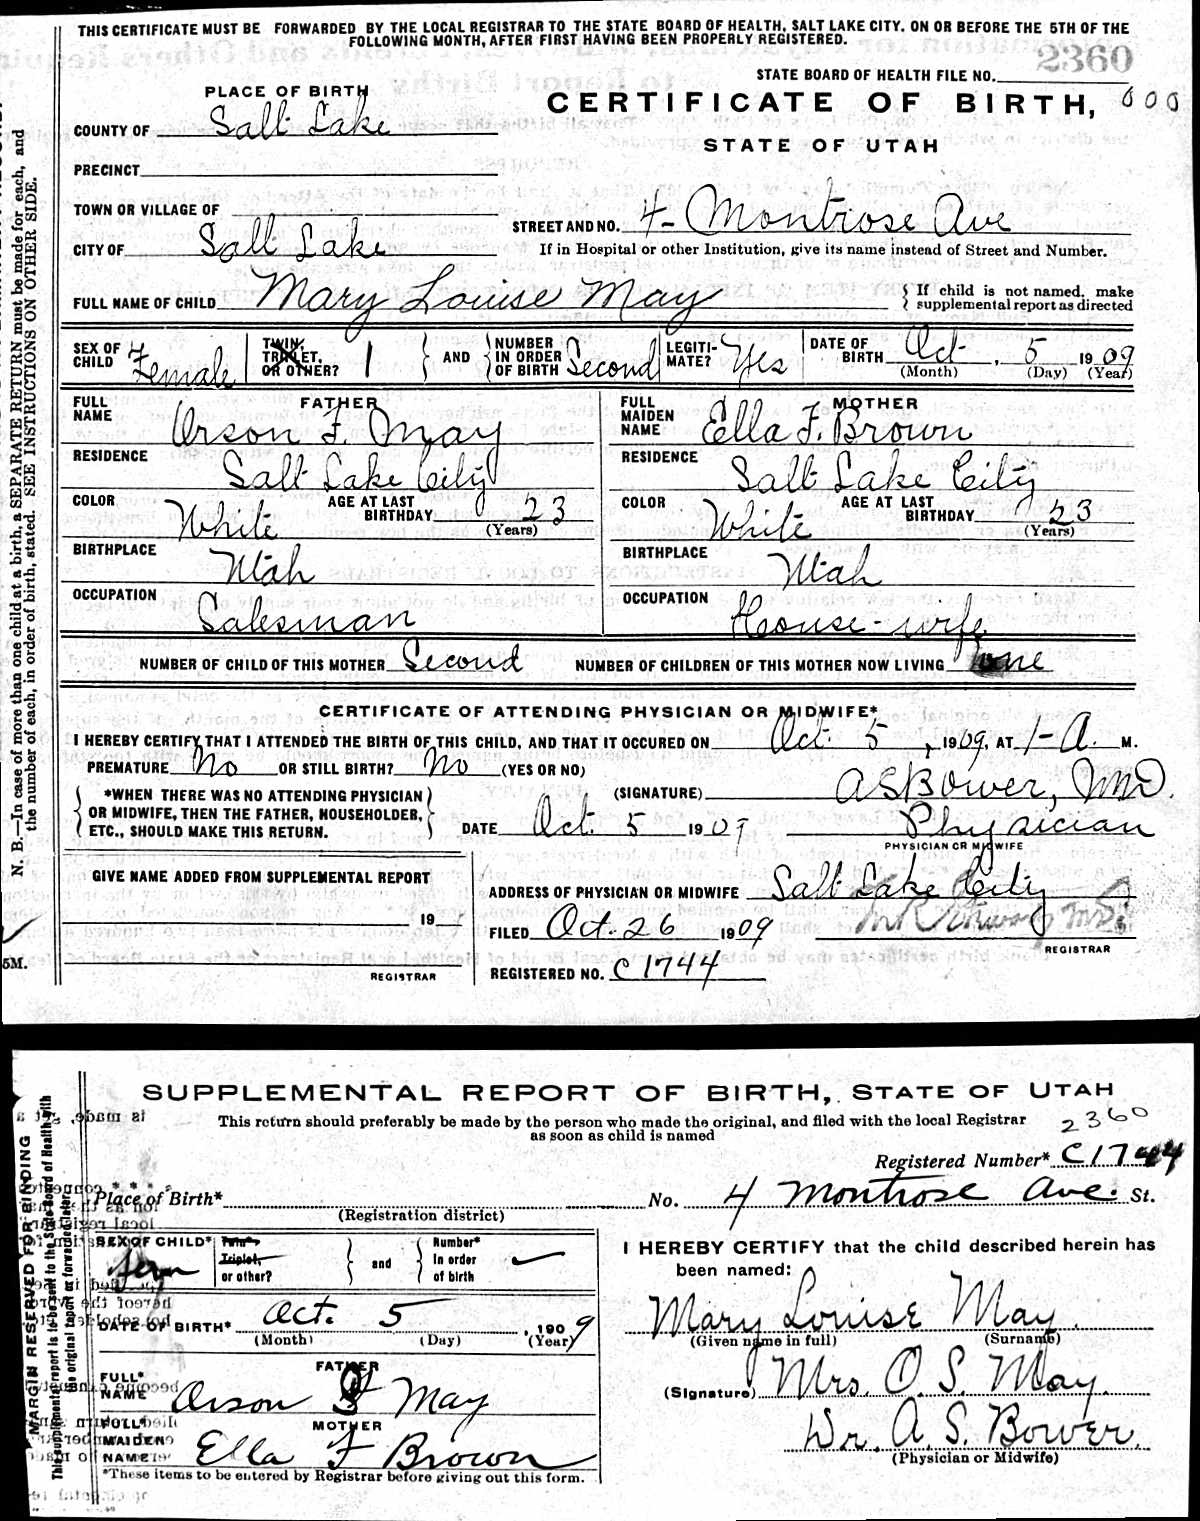 THIS CERTIFICATE MUST BE FORWARDED BY THE LOCAL REGISTRAR TO THE STATE BOARD OF HEALTH, SALT LAKE CITY, ON OR BEFORE THE 5TH OF THE
FOLLOWING MONTH, AFTER FIRST HAVING BEEN PROPERLY REGISTERED.
2360
STATE BOARD OF HEALTH FILE NO.
PLACE OF BIRTH
CERTIFICATE OF BIRTH, 000
COUNTY OF Salt Lake
STATE OF UTAH
PRECINCT
TOWN OR VILLAGE OF
STREET AND NO. 4- Montrose Ave
CITY OF Salt Lake
If in Hospital or other Institution, give its name instead of Street and Number.
FULL NAME OF CHILD Mary Louise May
{ If child is not named, make supplemental report as directed
SEX OF CHILD Female
TWIN, TRIPLET, OR OTHER? 1 } AND { NUMBER IN ORDER OF BIRTH Second
LEGITIMATE? Yes
DATE OF BIRTH Oct , 5 1909
(Month) (Day) (Year)
FATHER
FULL NAME Orson F. May
RESIDENCE Salt Lake City
COLOR White AGE AT LAST BIRTHDAY 23 (Years)
BIRTHPLACE Utah
OCCUPATION Salesman
MOTHER
FULL MAIDEN NAME Ella F. Brown
RESIDENCE Salt Lake City
COLOR White AGE AT LAST BIRTHDAY 23 (Years)
BIRTHPLACE Utah
OCCUPATION House-wife
NUMBER OF CHILD OF THIS MOTHER Second NUMBER OF CHILDREN OF THIS MOTHER NOW LIVING
CERTIFICATE OF ATTENDING PHYSICIAN OR MIDWIFE*
I HEREBY CERTIFY THAT I ATTENDED THE BIRTH OF THIS CHILD, AND THAT IT OCCURED ON Oct. 5, 1909, AT 1-A. M.
PREMATURE No OR STILL BIRTH? No (YES OR NO)
{ *WHEN THERE WAS NO ATTENDING PHYSICIAN OR MIDWIFE, THEN THE FATHER, HOUSEHOLDER, ETC., SHOULD MAKE THIS RETURN. }
(SIGNATURE) A S Bower, M.D.
DATE Oct. 5 1909 Physician
PHYSICIAN OR MIDWIFE
GIVE NAME ADDED FROM SUPPLEMENTAL REPORT
19
REGISTRAR
ADDRESS OF PHYSICIAN OR MIDWIFE Salt Lake City
FILED Oct. 26 1909
REGISTRAR
REGISTERED NO. C1744
N. B.—In case of more than one child at a birth, a SEPARATE RETURN must be made for each, and
the number of each, in order of birth, stated. SEE INSTRUCTIONS ON OTHER SIDE.
5M.
SUPPLEMENTAL REPORT OF BIRTH, STATE OF UTAH
This return should preferably be made by the person who made the original, and filed with the local Registrar
as soon as child is named
2360
Registered Number* C1744
Place of Birth* No. 4 Montrose Ave. St.
(Registration district)
SEX OF CHILD* Fem
Twin* Triplet, or other? } and { Number* In order of birth
DATE OF BIRTH* Oct. 5, 1909
(Month) (Day) (Year)
FATHER
FULL* NAME Orson F May
MOTHER
FULL* MAIDEN NAME Ella F Brown
*These items to be entered by Registrar before giving out this form.
I HEREBY CERTIFY that the child described herein has
been named:
Mary Louise May
(Given name in full) (Surname)
(Signature) Mrs. O. S. May.
Dr. A. S. Bower.
(Physician or Midwife)
MARGIN RESERVED FOR BINDING
This supplemental report is to be sent to the State Board of Health with
the original report or forwarded later.